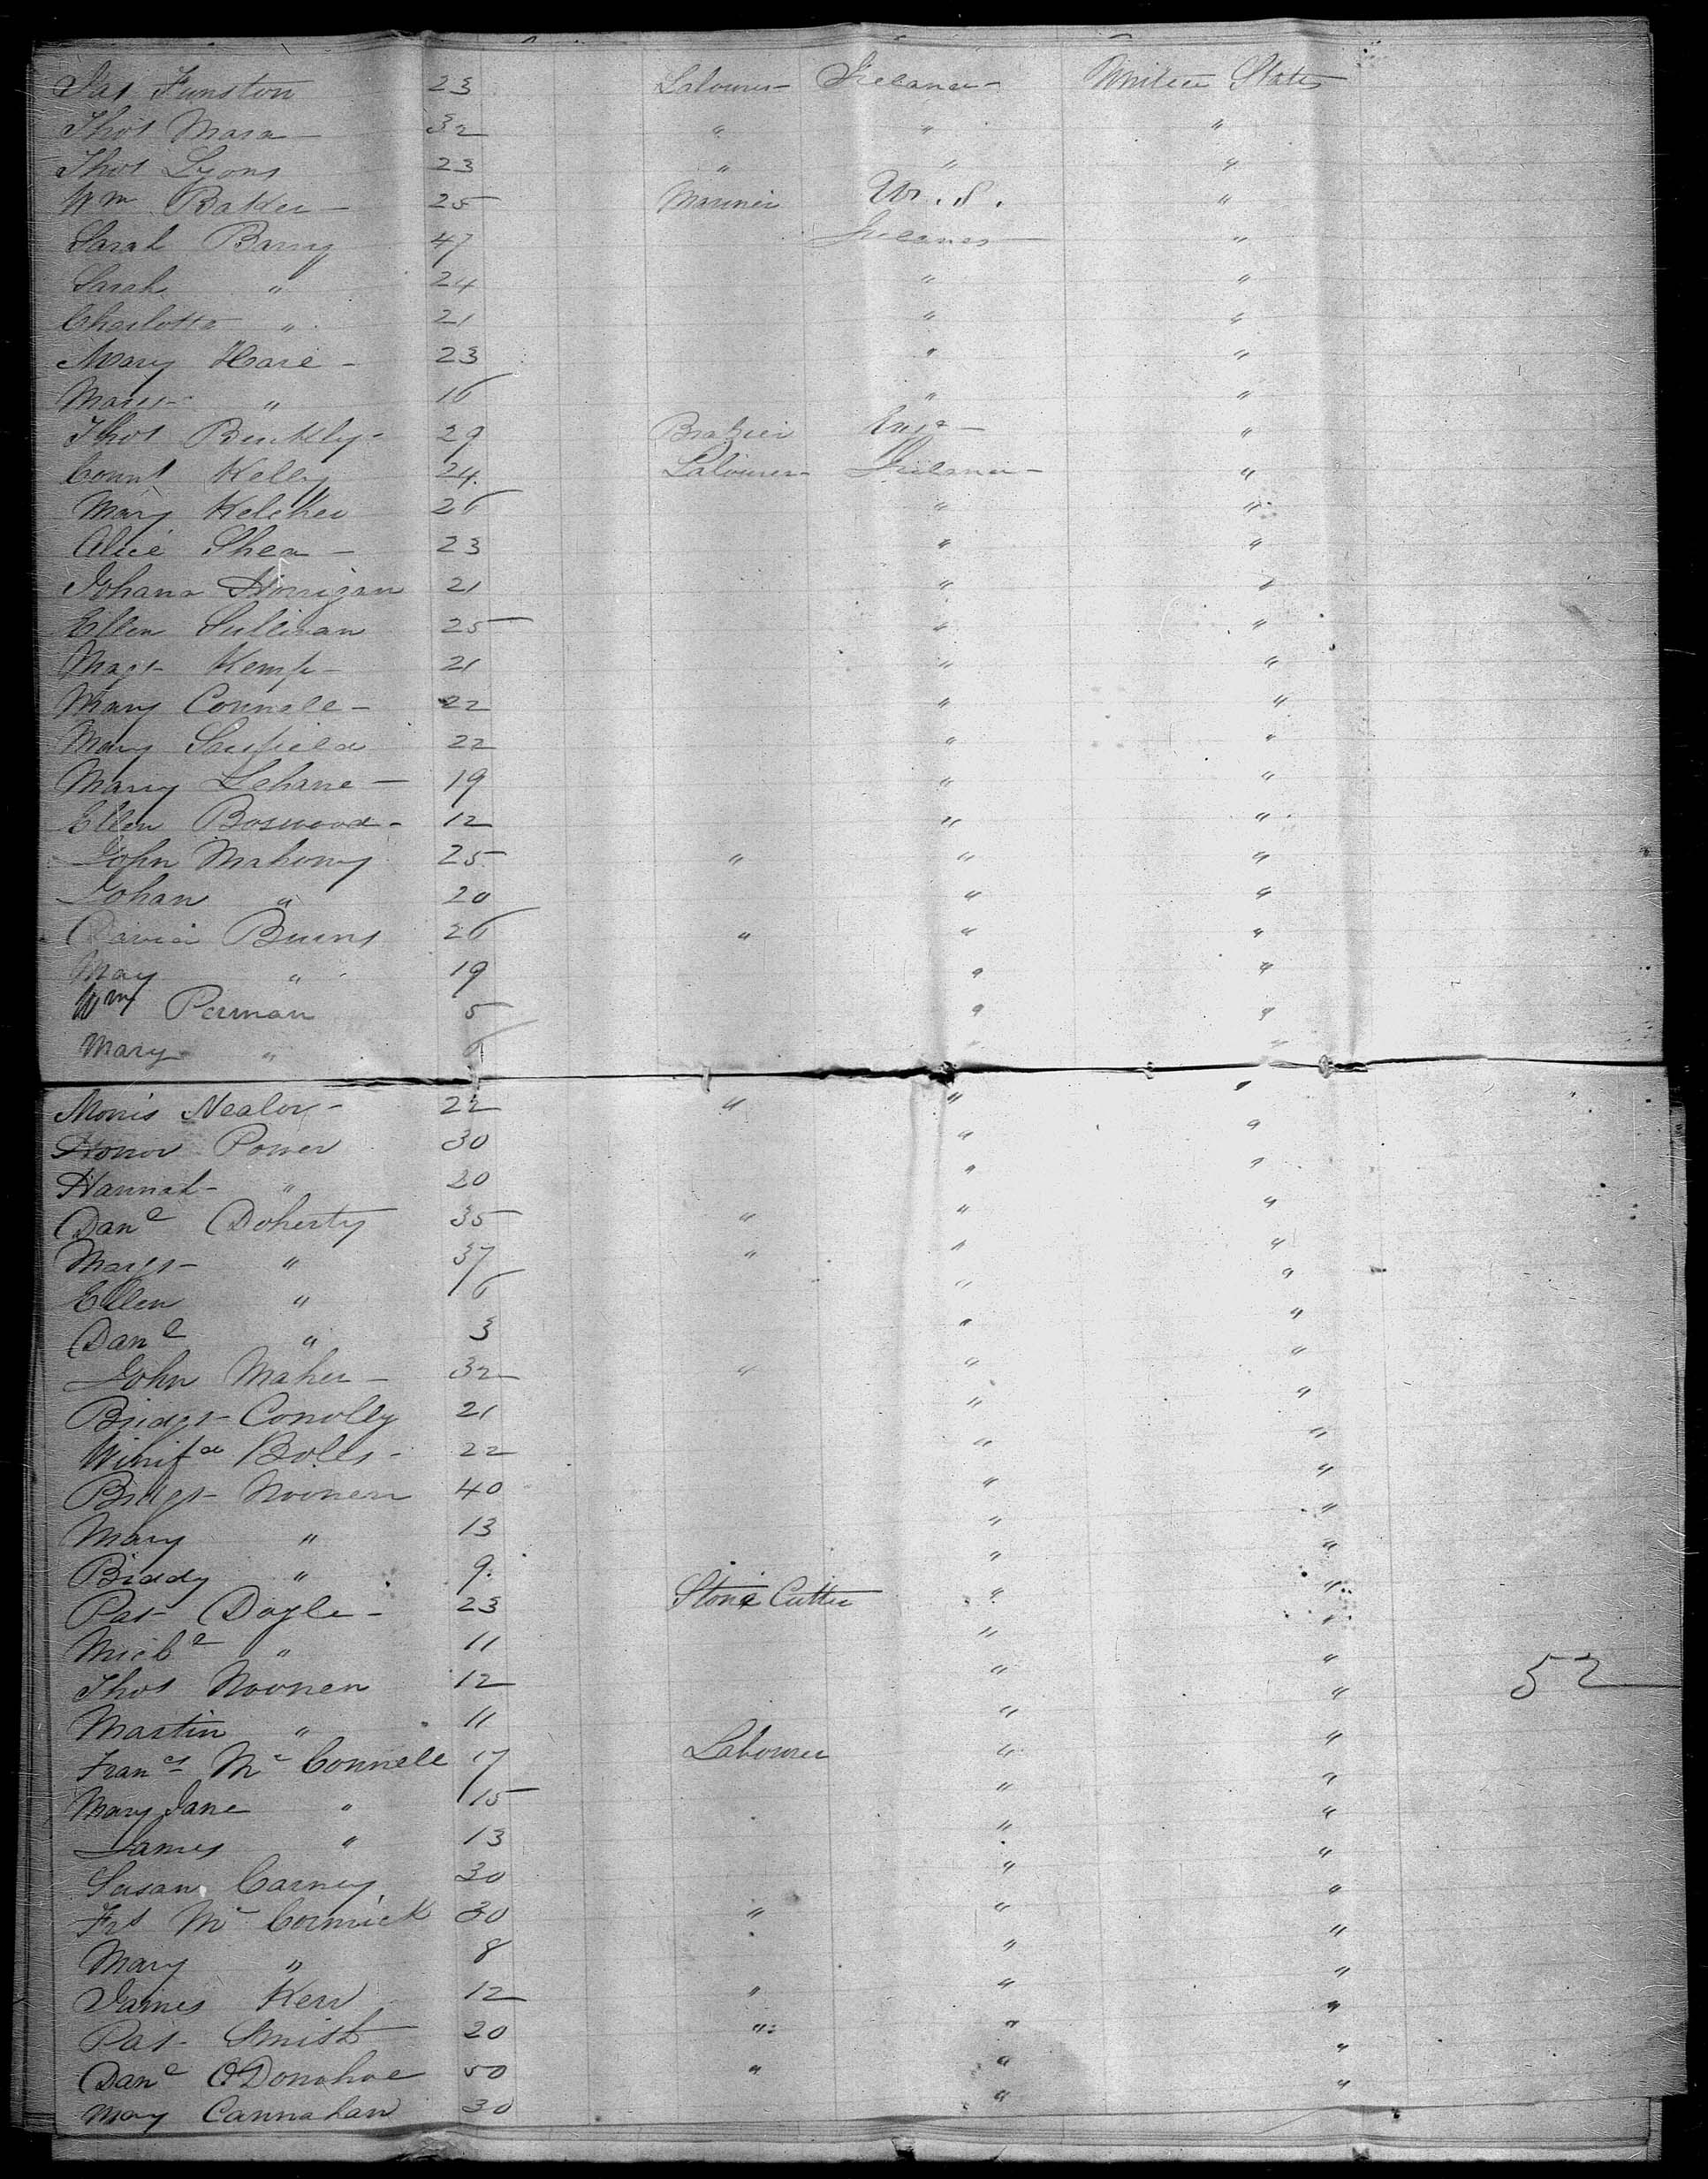 Pat Funston 23 Labourer Ireland United States
Thos Mara 32 " " "
Thos Lyons 23 " " "
Wm Baker 25 Mariner U. S. "
Sarah Barry 47 Ireland "
Sarah " 24 " "
Charlotte " 21 " "
Mary Hare 23 " "
Margt " 16 " "
Thos Buckley 29 Brazier Engd "
Kelly 24 Labourer Ireland "
Mary Keleher 26 " "
Alice Shea 23 " "
Johana Horrigan 21 " "
Ellen Sullivan 25 " "
Magt Kemp 21 " "
Mary Connell 22 " "
Mary Sarsfield 22 " "
Mary Lehane 19 " "
Ellen Boswood 12 " "
John Mahony 25 " " "
Johan " 20 " "
David Burns 26 " " "
May " 19 " "
Wm Perman 5 " "
Mary " 6 " "
Morris Nealon 22 " " "
Honor Power 30 " "
Hannah " 20 " "
Danl Doherty 35 " " "
Margt " 37 " " "
Ellen " 6 " "
Danl " 3 " "
John Maher 32 " " "
Bridgt Conolly 21 " "
Winifd Boles 22 " "
Bridgt Noonen 40 " "
Mary " 13 " "
Biddy " 9 " "
Pat Doyle 23 Stone Cutter " "
Michl " 11 " "
Thos Noonen 12 " " 52
Martin " 11 " "
Francs Mc Connell 17 Labourer " "
Mary Jane " 15 " "
James " 13 " "
Susan Carney 30 " "
Frs Mc Cormick 30 " " "
Mary " 8 " "
James Kerr 12 " " "
Pat Smith 20 " " "
Danl O'Donohoe 50 " " "
May Cannahan 30 "